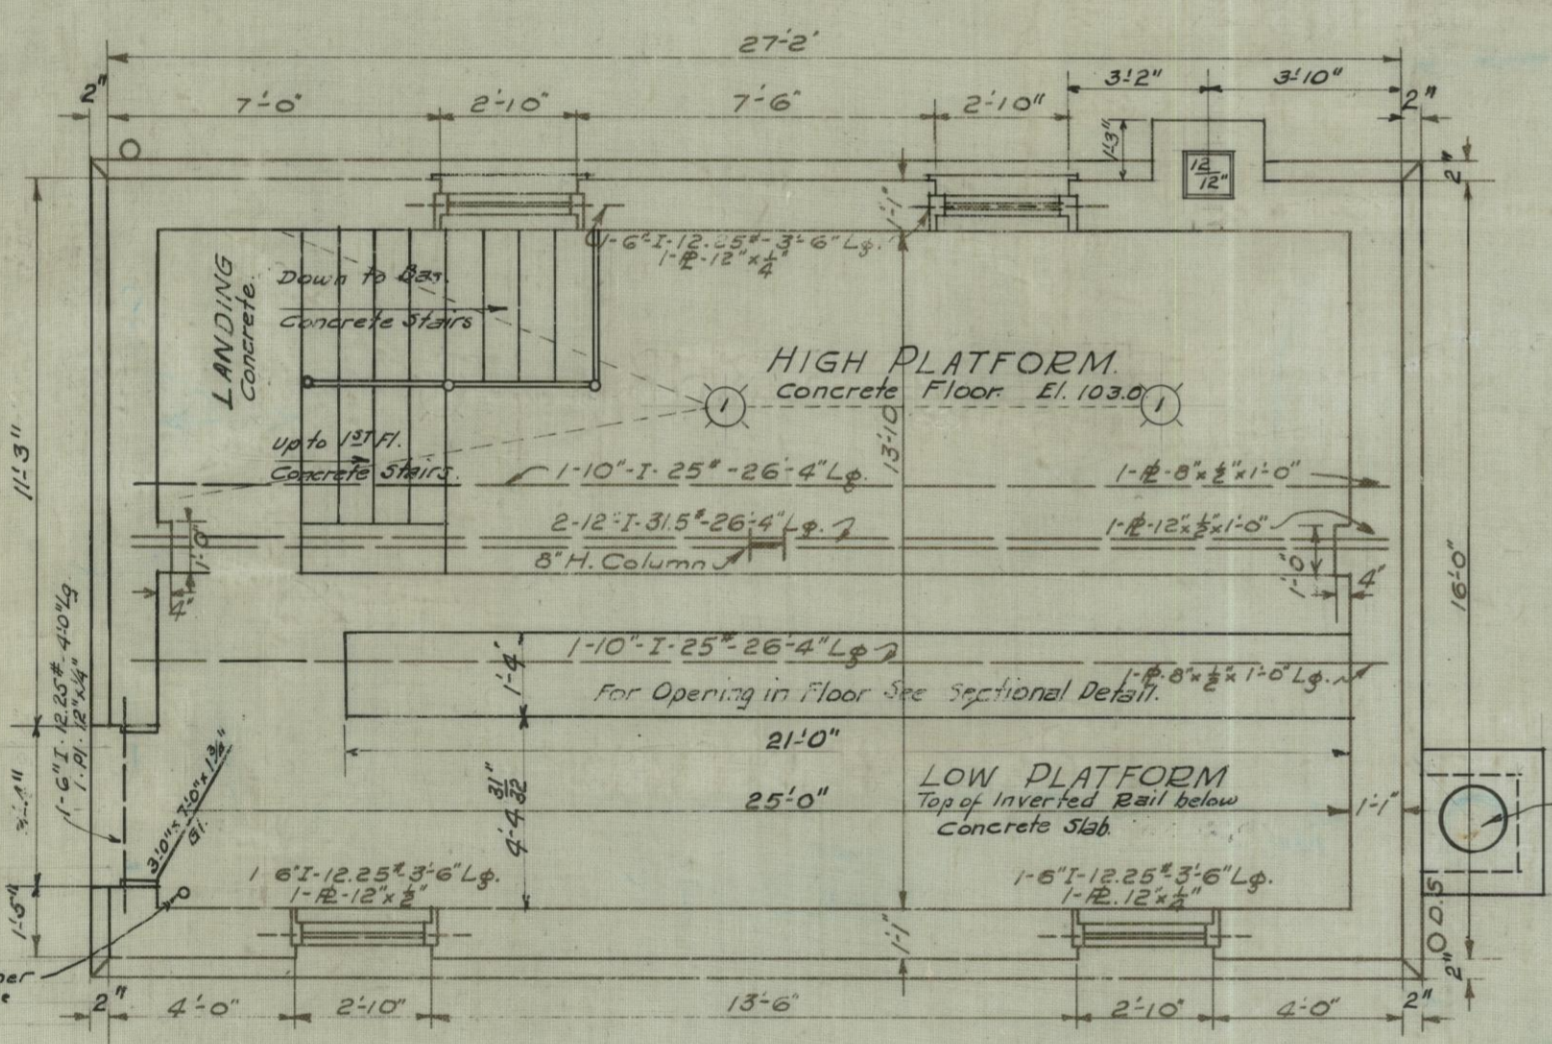 27'-2"
2" 7'-0" 2'-10" 7'-6" 2'-10" 3'-2" 3'-10" 2"
1'-3"
12
12"
2"
1'-1"
1-6"-I-12.25#-3'-6" Lg.
1-PL-12"x¼"
LANDING
Concrete.
Down to Bas.
Concrete Stairs
HIGH PLATFORM.
Concrete Floor. El. 103.0
1 1
up to 1ST Fl.
Concrete Stairs.
13'-10"
11'-3"
1-10"-I-25#-26'-4" Lg.
1-PL-8"x½"x1'-0"
2-12"-I-31.5#-26'-4" Lg.
1-PL-12"x½"x1'-0"
8" H. Column
1'-0"
4"
1'-0"
4"
16'-0"
1-6" I-12.25# 4'-0" Lg
1-Pl-12"x¼"
1-10"-I-25#-26'-4" Lg
1-PL-8"x½"x1'-0" Lg.
1'-4"
For Opening in Floor See Sectional Detail.
21'-0"
LOW PLATFORM
Top of Inverted Rail below
Concrete Slab.
25'-0"
1'-1"
4'-4 31/32"
3'-0"x7'-0"x1¾"
Gl.
1-6" I-12.25# 3'-6" Lg.
1-PL-12"x½"
1-6" I-12.25# 3'-6" Lg.
1-PL-12"x¼"
1'-5"
1'-1"
O D.S.
2"
2" 4'-0" 2'-10" 13'-6" 2'-10" 4'-0" 2"